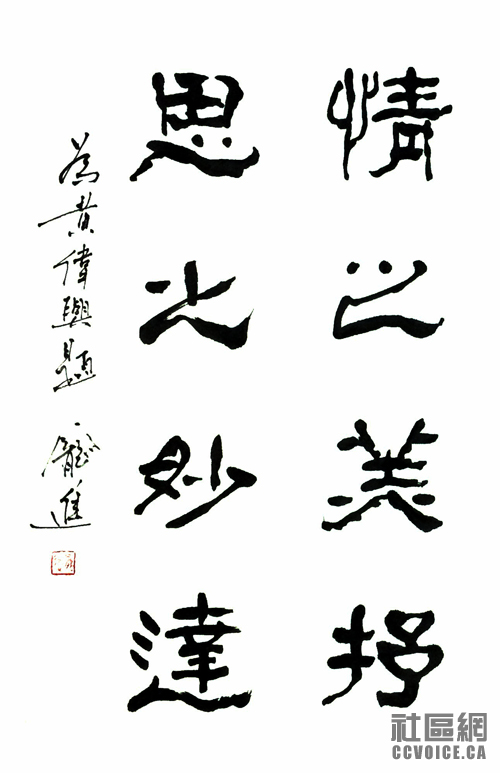 情之美抒
思之妙達
為黄偉興題 龐進
社區網
CCVOICE.CA